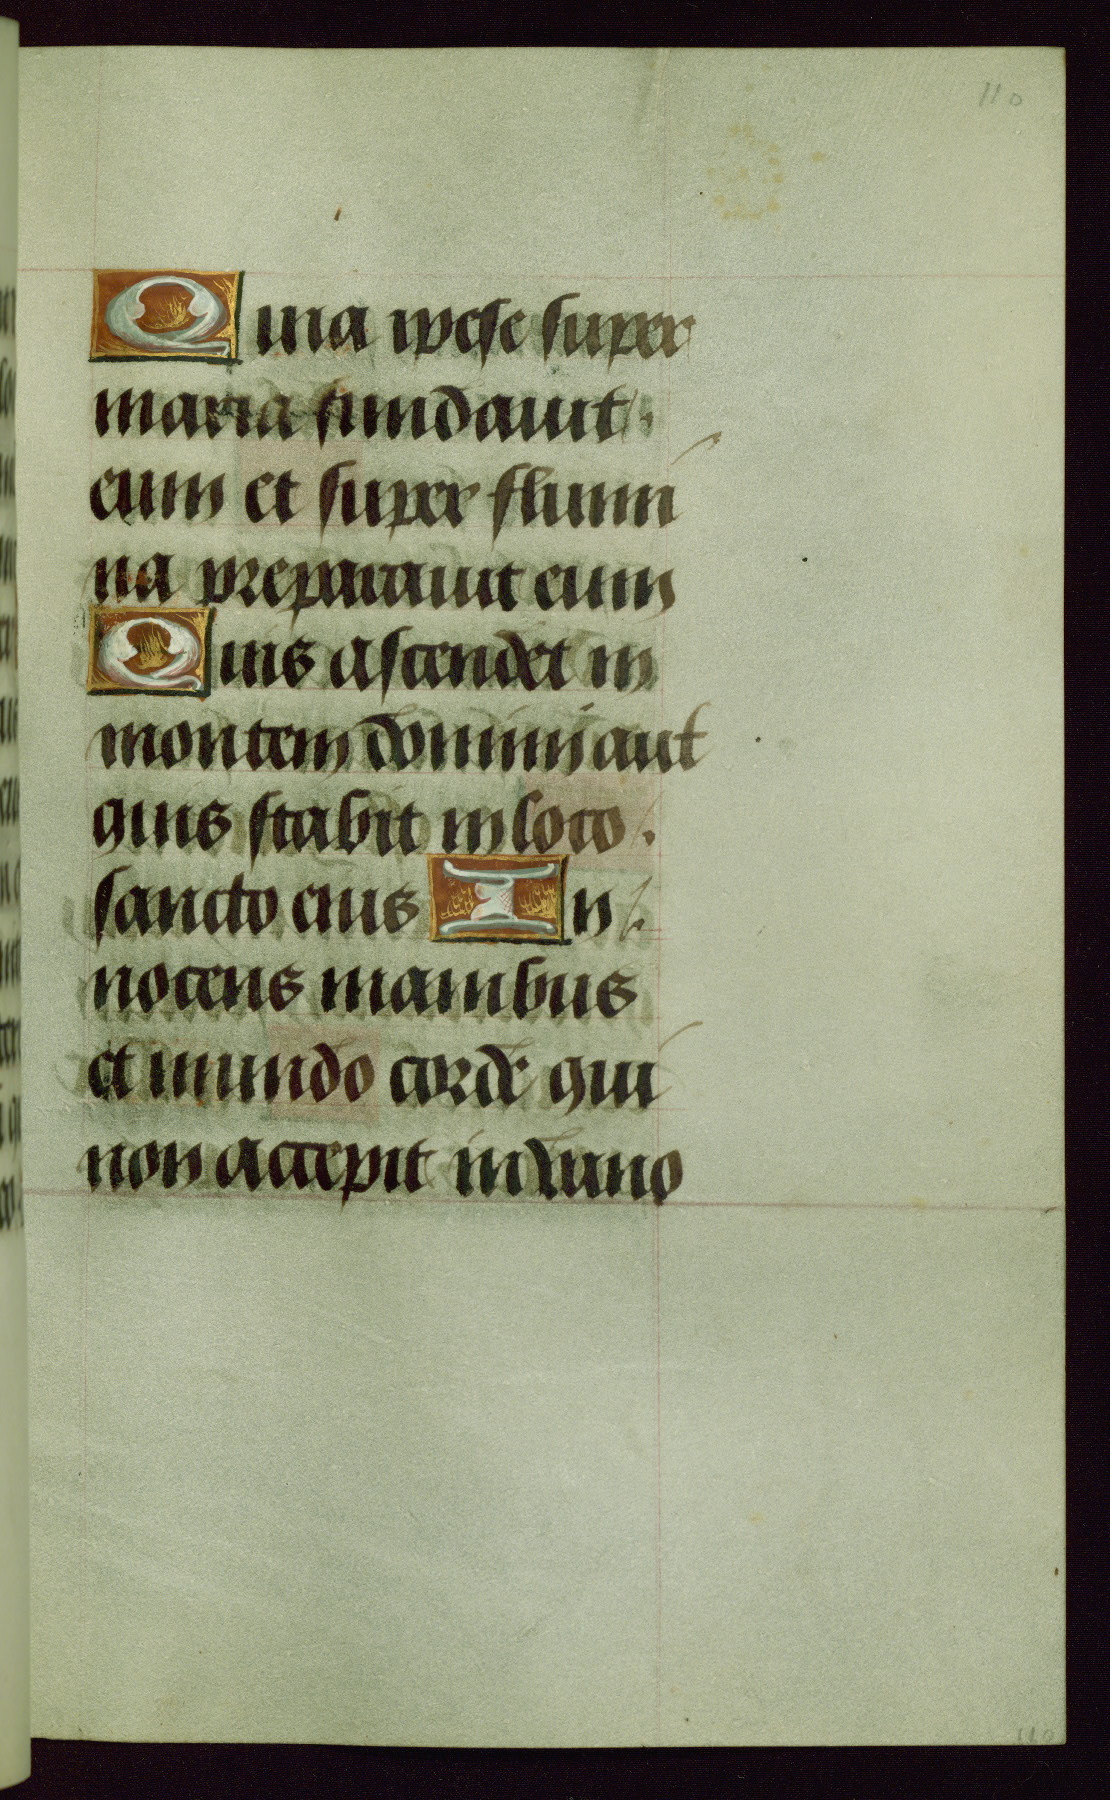 110
Quia ipese super
maria fundauit
eum et super flumi
na preparauit eum
Quis ascendet in
montem domini aut
quis stabit in loco .
sancto eius In
nocens manibus
et mundo corde qui
non accepit in vano
110